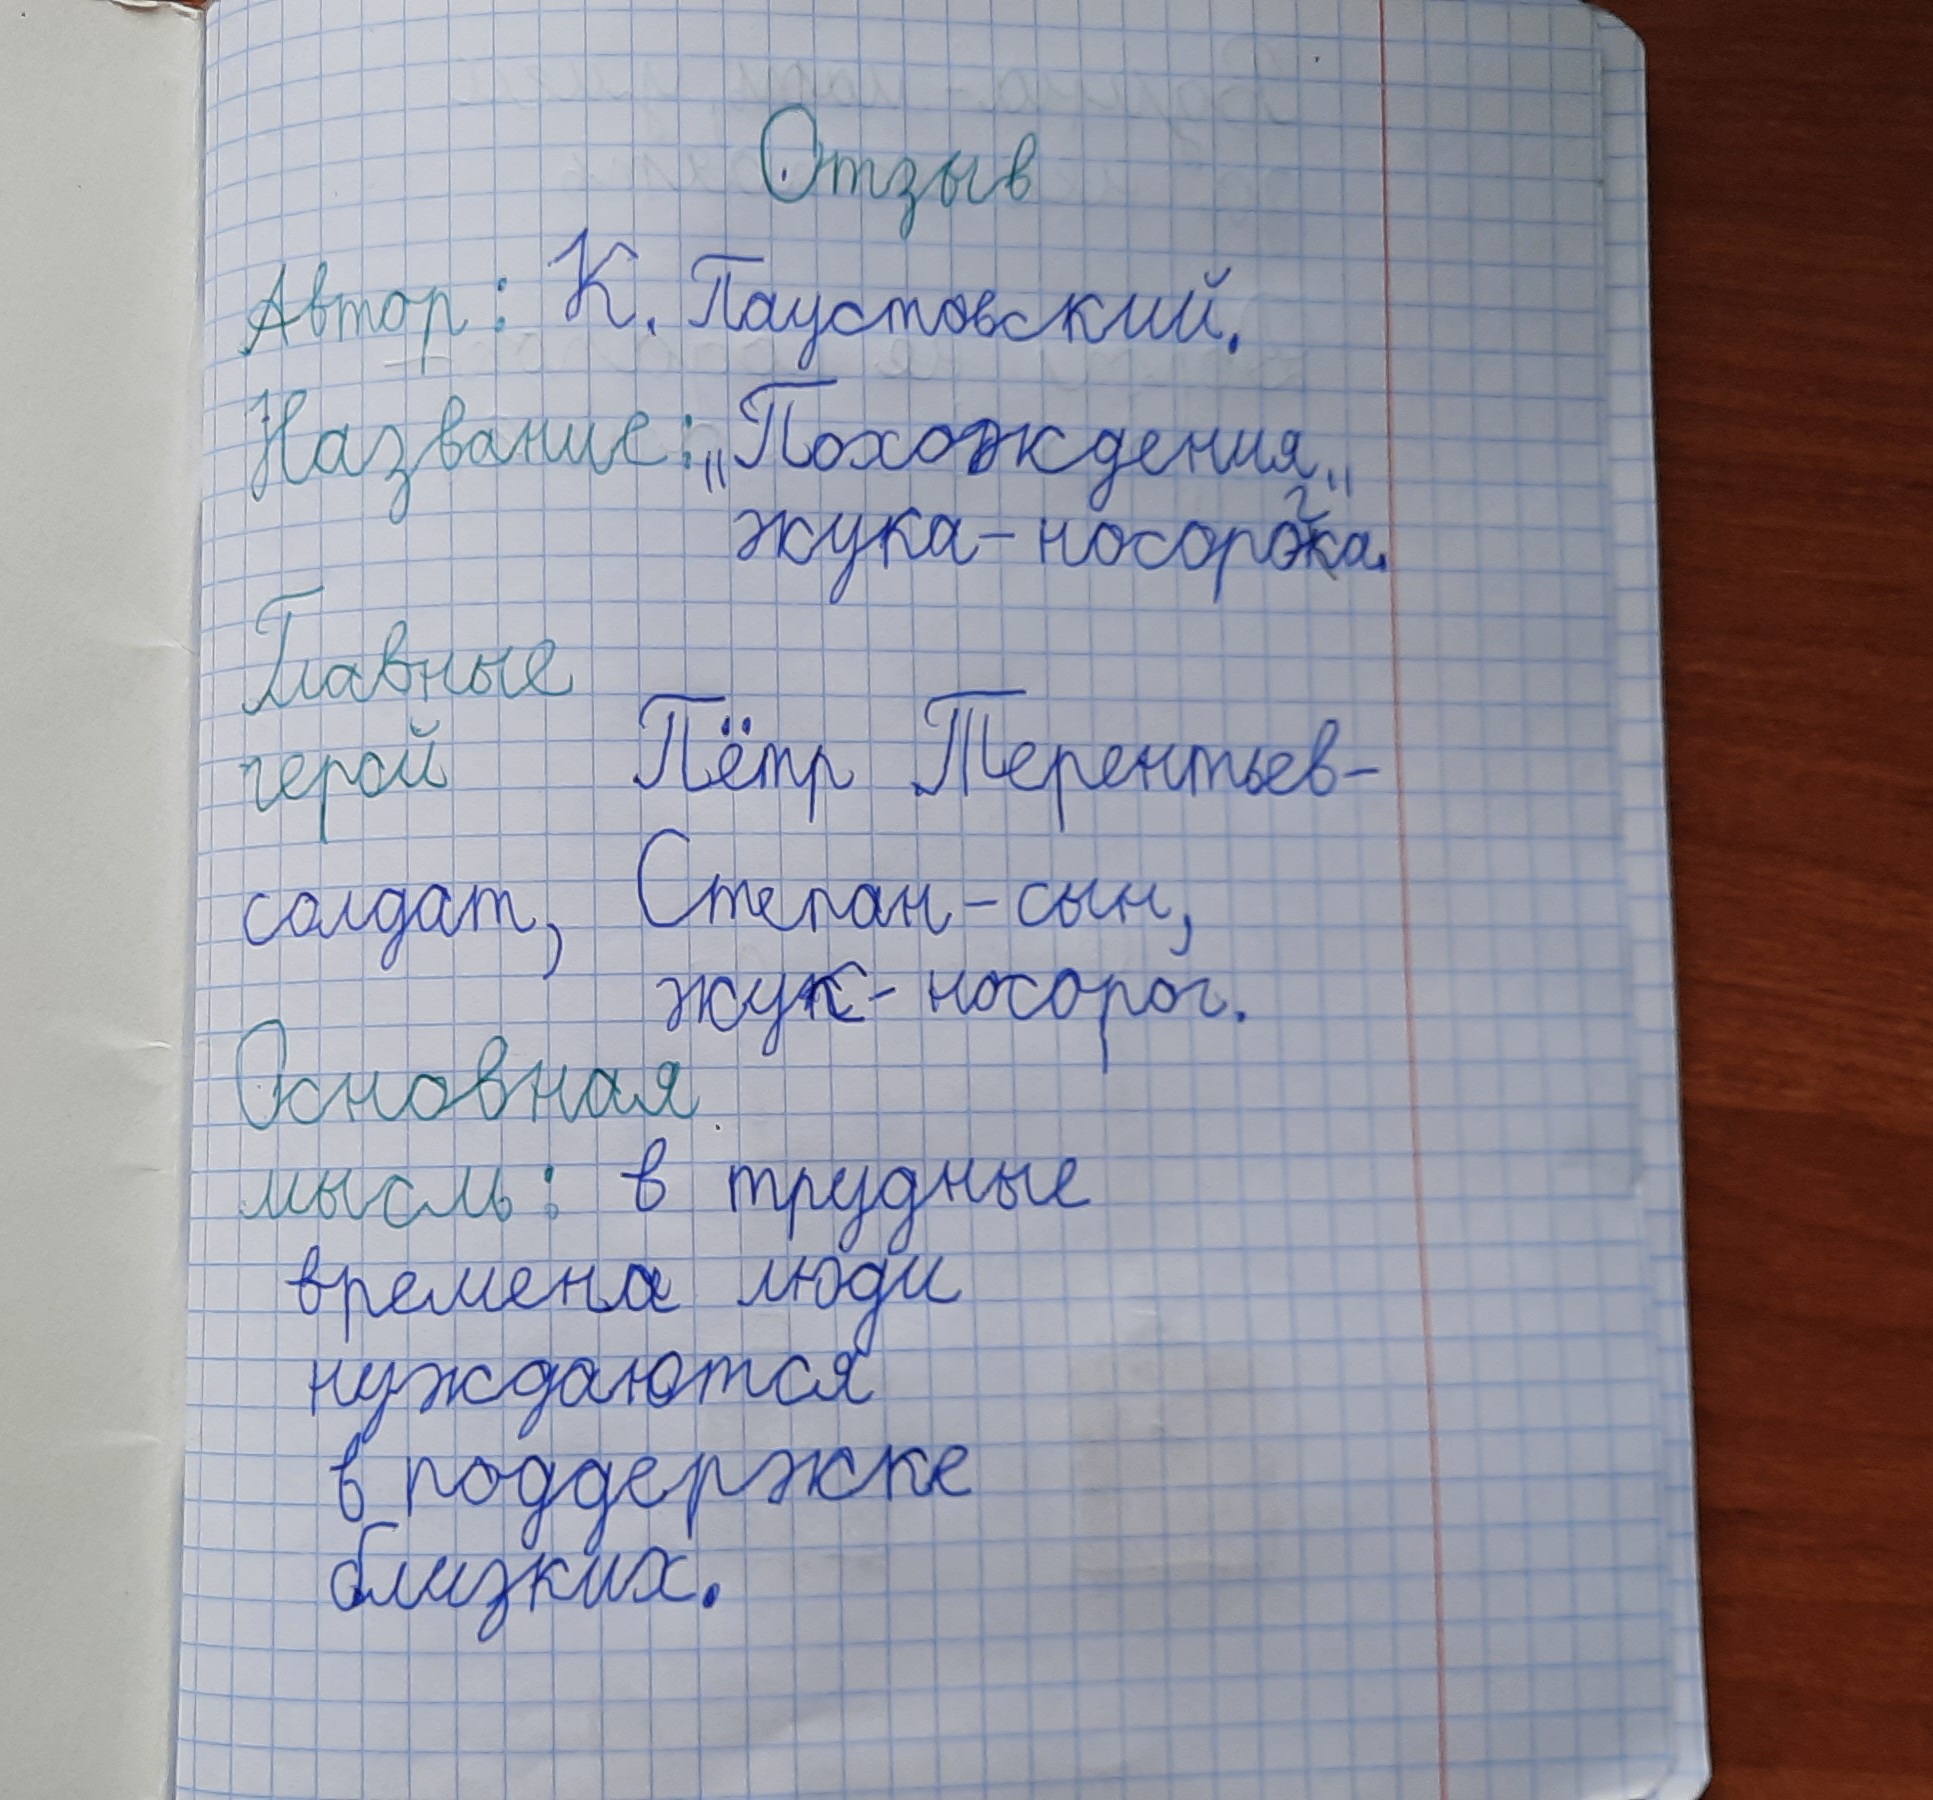 Отзыв
Автор: К. Паустовский.
Название: „Похождения"
жука-носорога.
Главные
герой Пётр Терентьев-
солдат, Степан-сын,
жук-носорог.
Основная
мысль: в трудные
времена люди
нуждаются
в поддержке
близких.